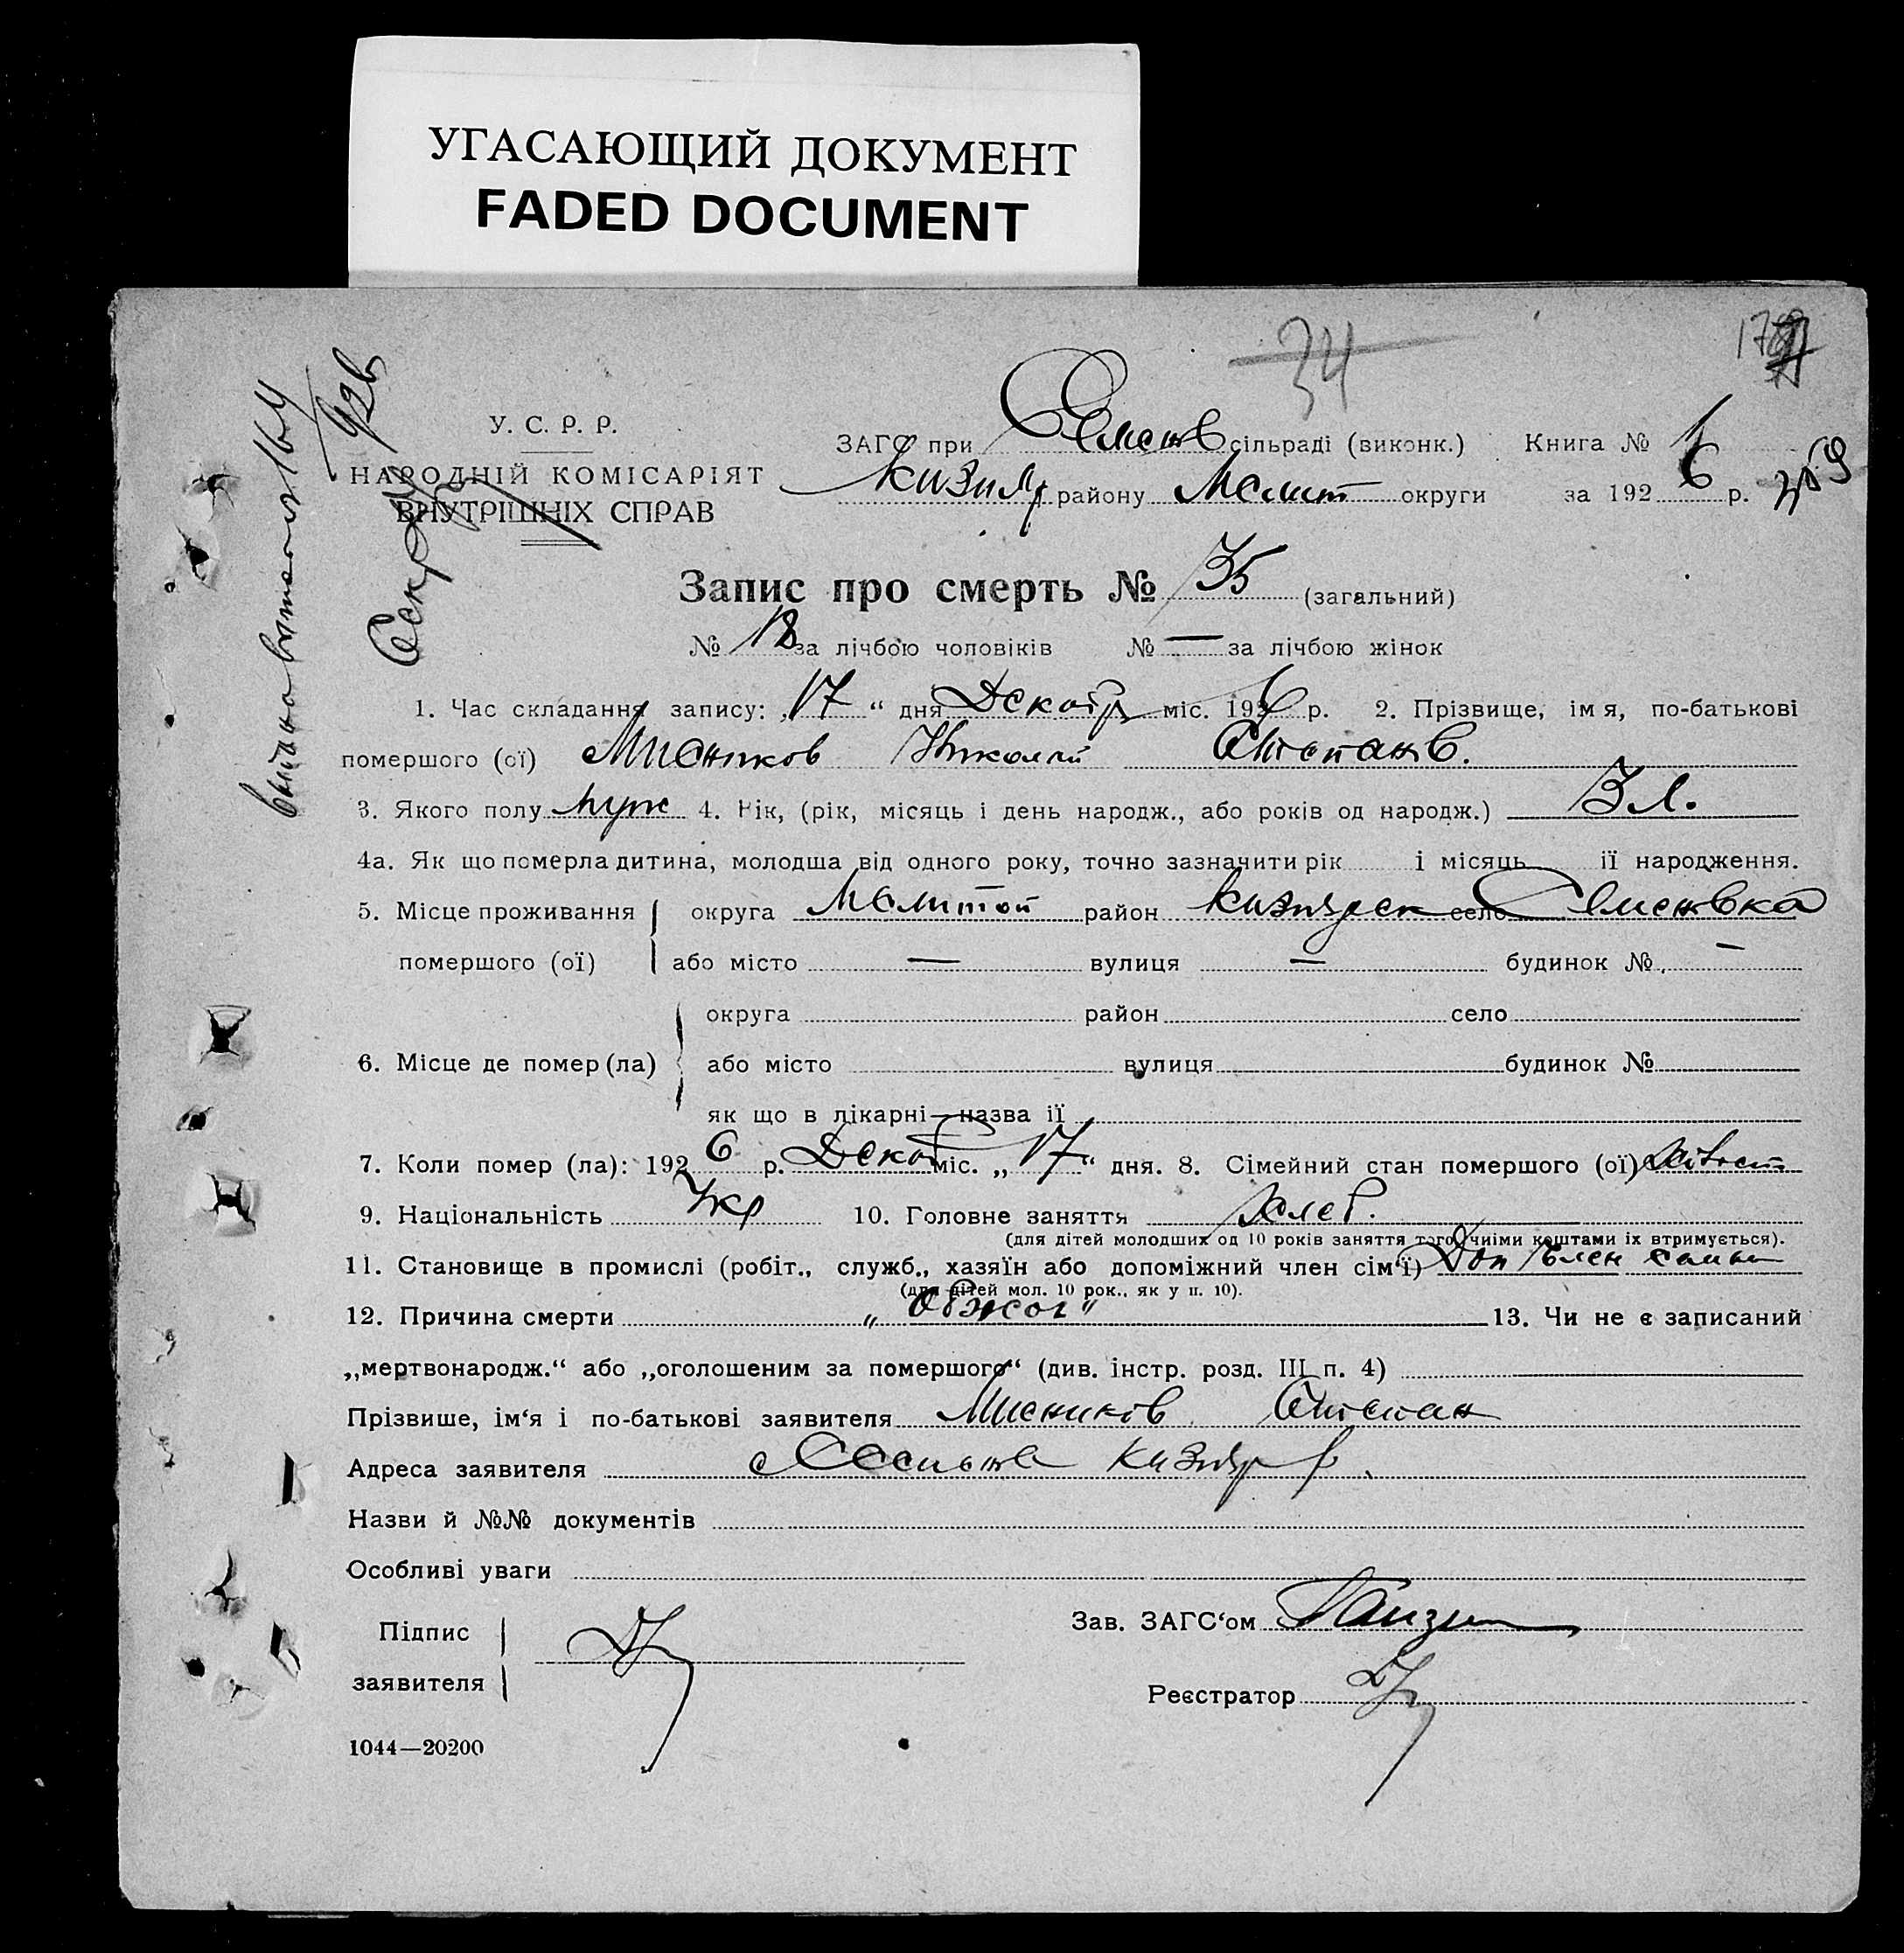 УГАСАЮЩИЙ ДОКУМЕНТ
FADED DOCUMENT
34
У. С. Р. Р.
НАРОДНІЙ КОМІСАРІЯТ
ВНУТРІШНІХ СПРАВ
ЗАГС при Семенів сільраді (виконк.) Книга № 1
району Меліт округи за 192 6 р.
Запис про смерть № 35 (загальний)
№ 18 за лічбою чоловіків № — за лічбою жінок
1. Час складання запису: „17“ дня Декабр міс. 192 6 р. 2. Прізвище, імя, по-батькові
помершого (ої) Мисников Николай Степанов.
3. Якого полу муж 4. Вік, (рік, місяць і день народж., або років од народж.) 3 л.
4а. Як що померла дитина, молодша від одного року, точно зазначити рік і місяць її народження.
5. Місце проживання округа Мелитой район Кизиярск село Семеновка
помершого (ої) або місто — вулиця — будинок № —
округа район село
6. Місце де помер (ла) або місто вулиця будинок №
як що в лікарні—назва її
7. Коли помер (ла): 192 6 р. Декаб міс. „17“ дня. 8. Сімейний стан помершого (ої)
9. Національність Укр 10. Головне заняття Хлеб.
(для дітей молодших од 10 років заняття того, чиїми коштами їх втримується).
11. Становище в промислі (робіт., служб., хазяїн або допоміжний член сім‘ї) Доп член семьи
(для дітей мол. 10 рок., як у п. 10).
12. Причина смерти „Обжог“ 13. Чи не є записаний
„мертвонародж.“ або „оголошеним за помершого“ (див. інстр. розд. III п. 4)
Прізвише, ім‘я і по-батькові заявителя Мисников Степан
Адреса заявителя
Назви й №№ документів
Особливі уваги
Підпис
заявителя
Зав. ЗАГС‘ом
Реєстратор
1044—20200